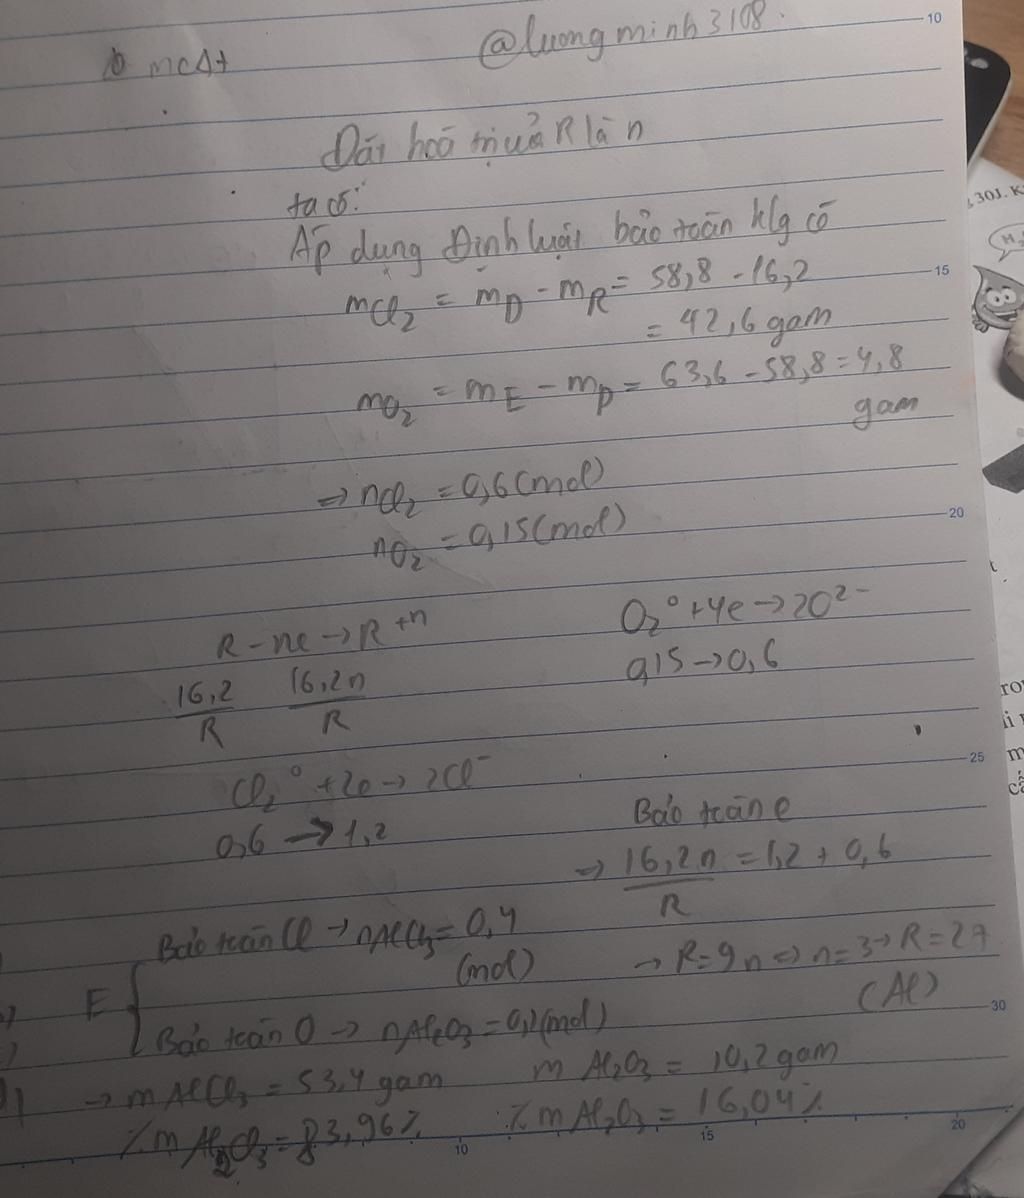 @luongminh3108.
Đặt hoá trị của R là n
ta có:
Áp dụng Định luật bảo toàn klg có
mCl₂ = mD - mR = 58,8 - 16,2
= 42,6 gam
mO₂ = mE - mD = 63,6 - 58,8 = 4,8
gam
⇒ nCl₂ = 0,6 (mol)
nO₂ = 0,15 (mol)
R - ne → R⁺ⁿ
16,2/R 16,2n/R
O₂⁰ + 4e → 2O²⁻
0,15 → 0,6
Cl₂⁰ + 2e → 2Cl⁻
0,6 → 1,2
Bảo toàn e
⇒ 16,2n/R = 1,2 + 0,6
→ R = 9n ⇔ n = 3 → R = 27
(Al)
E { Bảo toàn Cl → nAlCl₃ = 0,4
(mol)
Bảo toàn O → nAl₂O₃ = 0,1 (mol)
→ mAlCl₃ = 53,4 gam mAl₂O₃ = 10,2 gam
%mAl₂Cl₃ = 83,96% %mAl₂O₃ = 16,04%
10
15
20
25
30
10 15 20
301. K